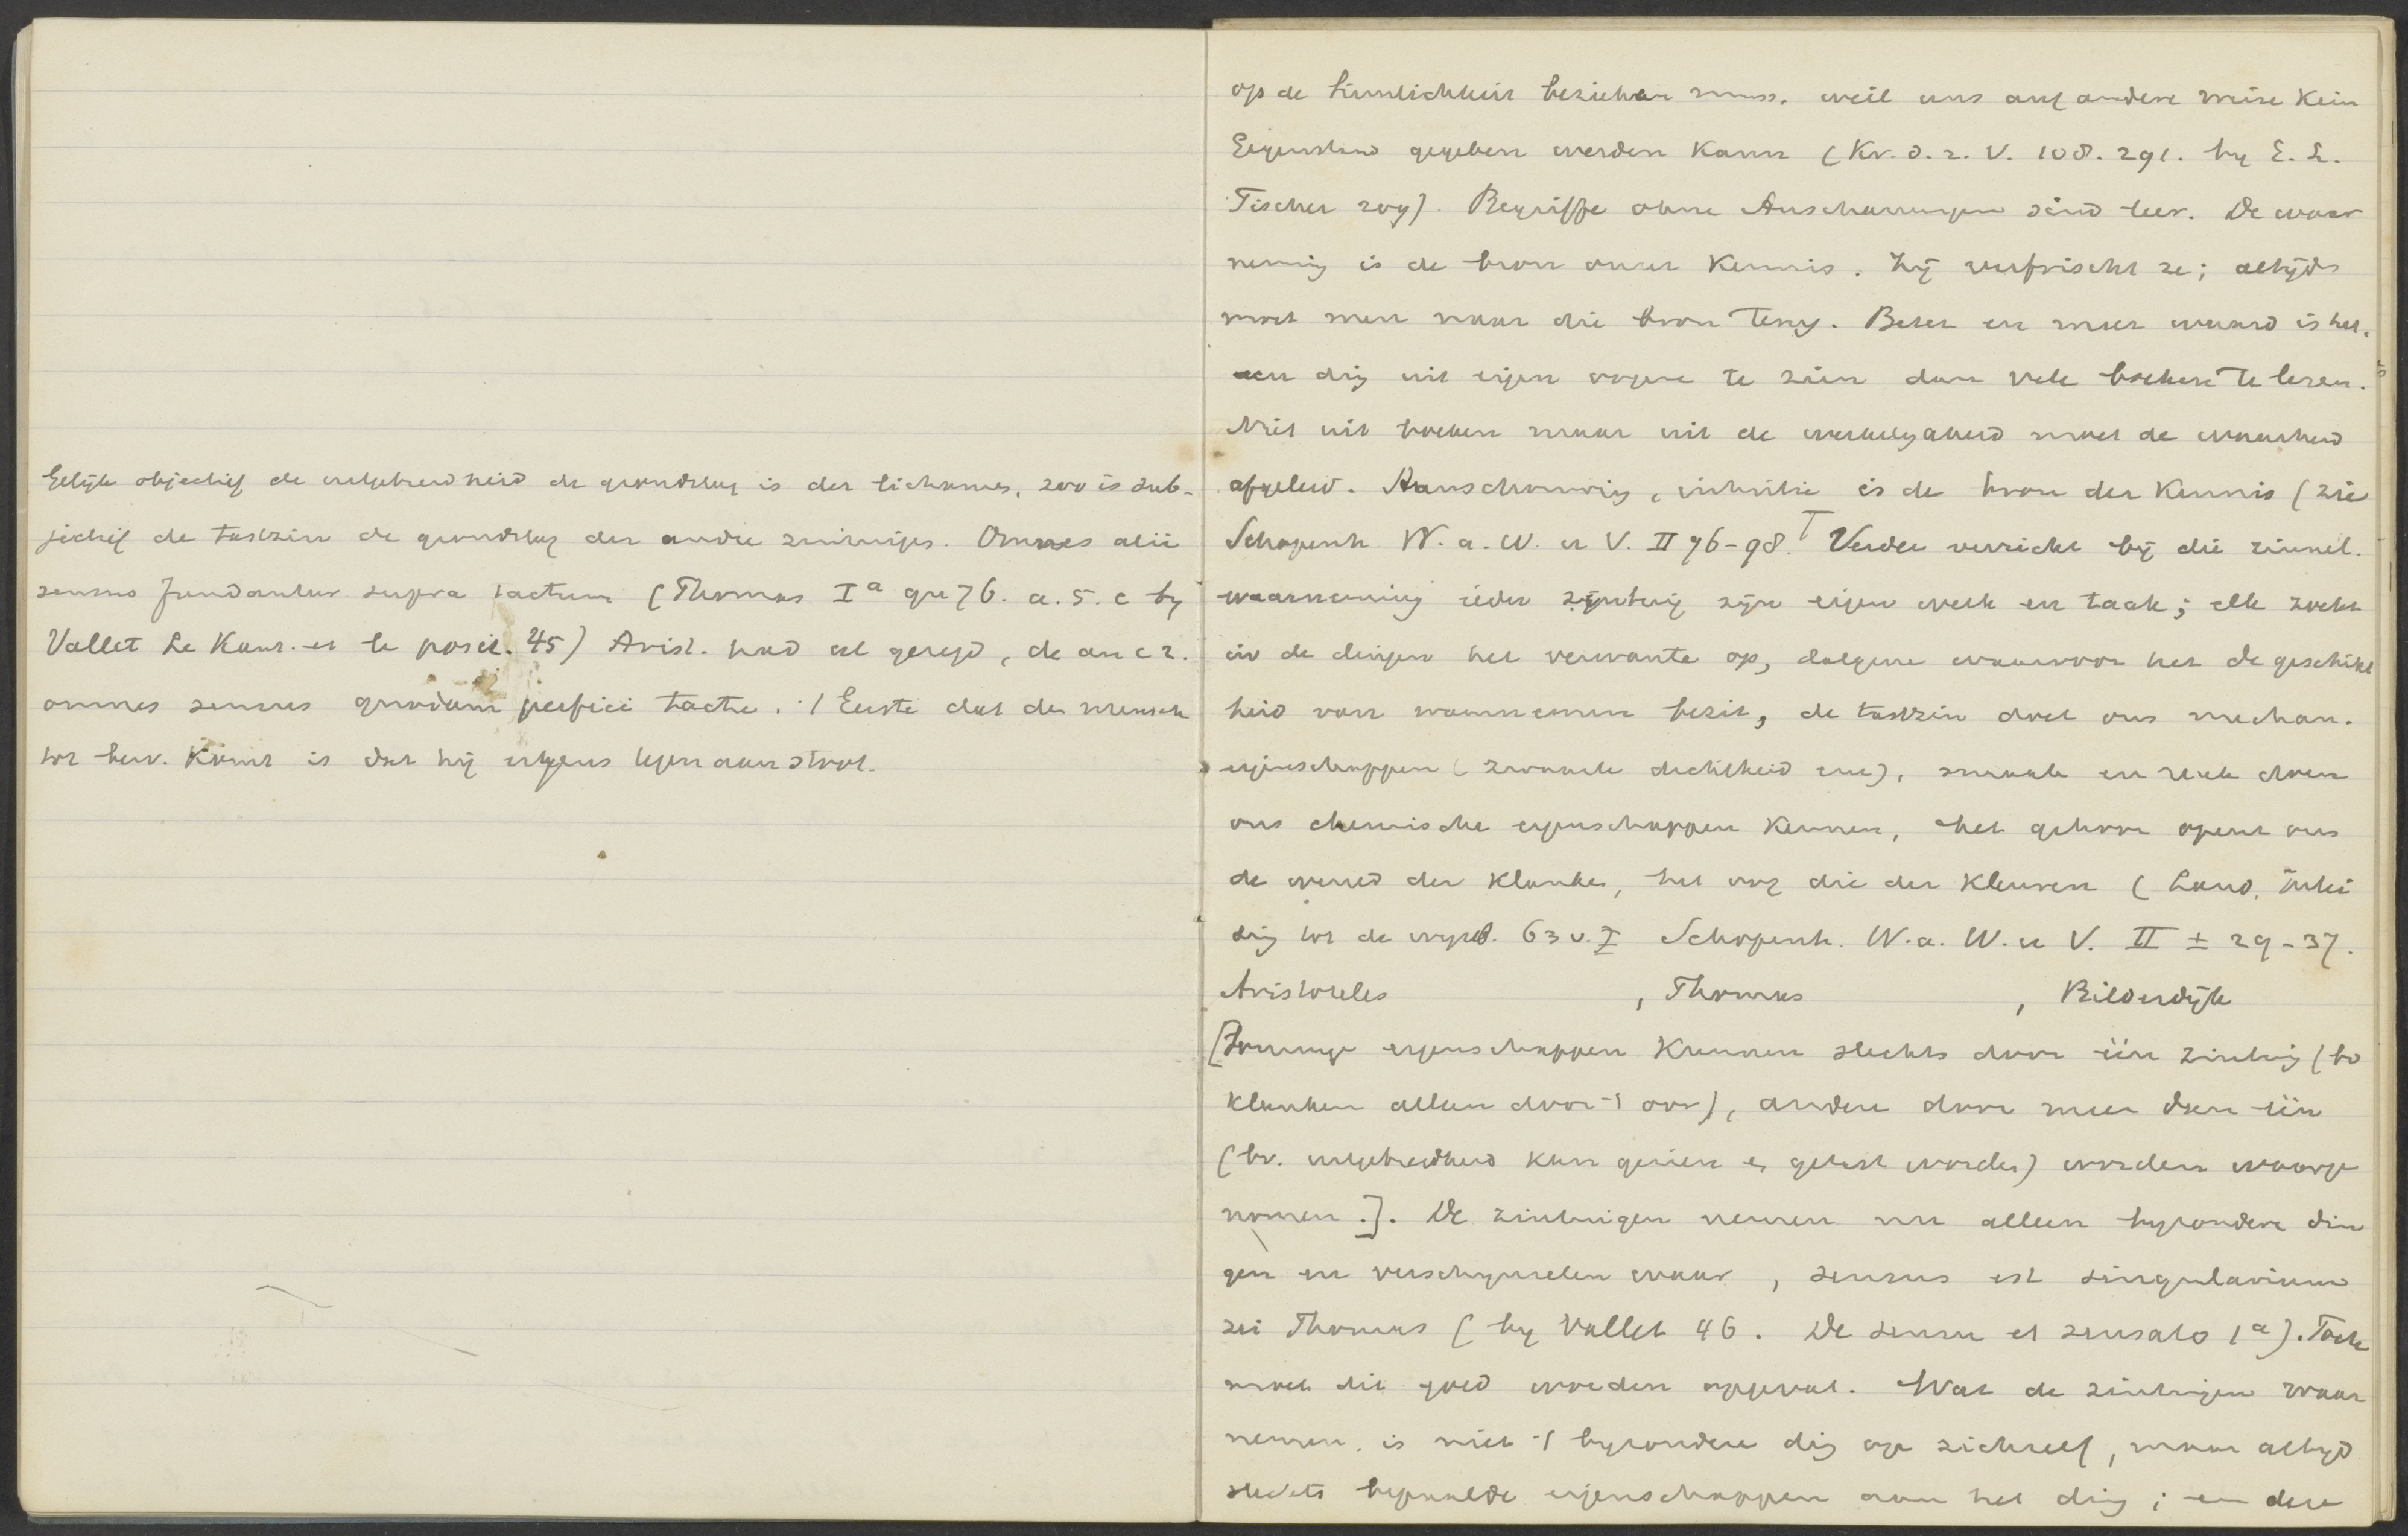 Gelijk objectief de uitgebreidheid de grondslag is der lichamen, zoo is sub-
jectief de tastzin de grondslag der andre zintuigen. Omnes alii
sensus fundantur supra tactum (Thomas Iª qu 76. a. 5. c by
Vallet Le Kant. et le posit. 45) Arist. had al gezegd, de an c 2.
omnes sensus quodam perfici tactu. 't Eerste dat de mensch
tot bew. komt is dat hij ergens tegen aan stoot.
op de Sinnlichkeit beziehen muss, weil uns auf andere weise kein
Gegenstand gegeben werden kann (Kr. d. r. V. 108. 291. by E. L.
Fischer 209). Begriffe ohne Anschauungen sind leer. De waar
neming is de bron onzer kennis. Zij verfrischt ze; altijd
moet men naar die bron terug. Beter en meer waard is het,
een ding uit eigen oogen te zien dan vele boeken te lezen.
Niet uit boeken maar uit de werkelijkheid moet de waarheid
afgeleid. Aanschouwing, intuitie is de bron der kennis (zie
Schopenh W. a. W. u V. II 76-98. Verder verricht bij die zinnel.
waarneming ieder zintuig zijn eigen werk en taak; elk zoekt
in de dingen het verwante op, datgene waarvoor het de geschikt
heid van waarnemen bezit, de tastzin doet ons mechan.
eigenschappen (zwaarte dichtheid enz), smaak en reuk doen
ons chemische eigenschappen kennen, het gehoor opent ons
de wereld der klanken, het oog die der kleuren (Land, Inlei
ding tot de wysb. 63 v. Schopenh. W. a. W. u V. II ± 29-37.
Aristoteles , Thomas , Bilderdijk
[Sommige eigenschappen kunnen slechts door één zintuig (bv
klanken alleen door 't oor), andere door meer dan één
(bv. uitgebreidheid kan gezien en getast worden) worden waarge
nomen.]. De zintuigen nemen nu alleen byzondere din
gen en verschynselen waar, sensus est singularium
zei Thomas (by Vallet 46. De sensu et sensato 1ª). Toch
moet dit goed worden opgevat. Wat de zintuigen waar
nemen, is niet 't byzondere ding op zichzelf, maar altyd
slechts bepaalde eigenschappen aan het ding; en deze